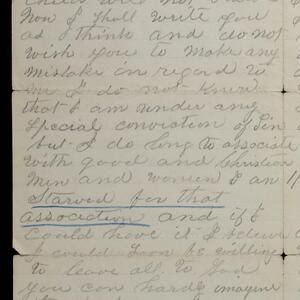 Now I shall write you
as I think and do not
wish you to make any
mistake in regard to
me I do not know
that I am under any
Special conviction of Sin
but I do long to associate
with good and Christian
Men and women I am
Starved for that
association and if I
Could have it I believe
I would Soon be willing
to leave all to God
you can hardly imagine